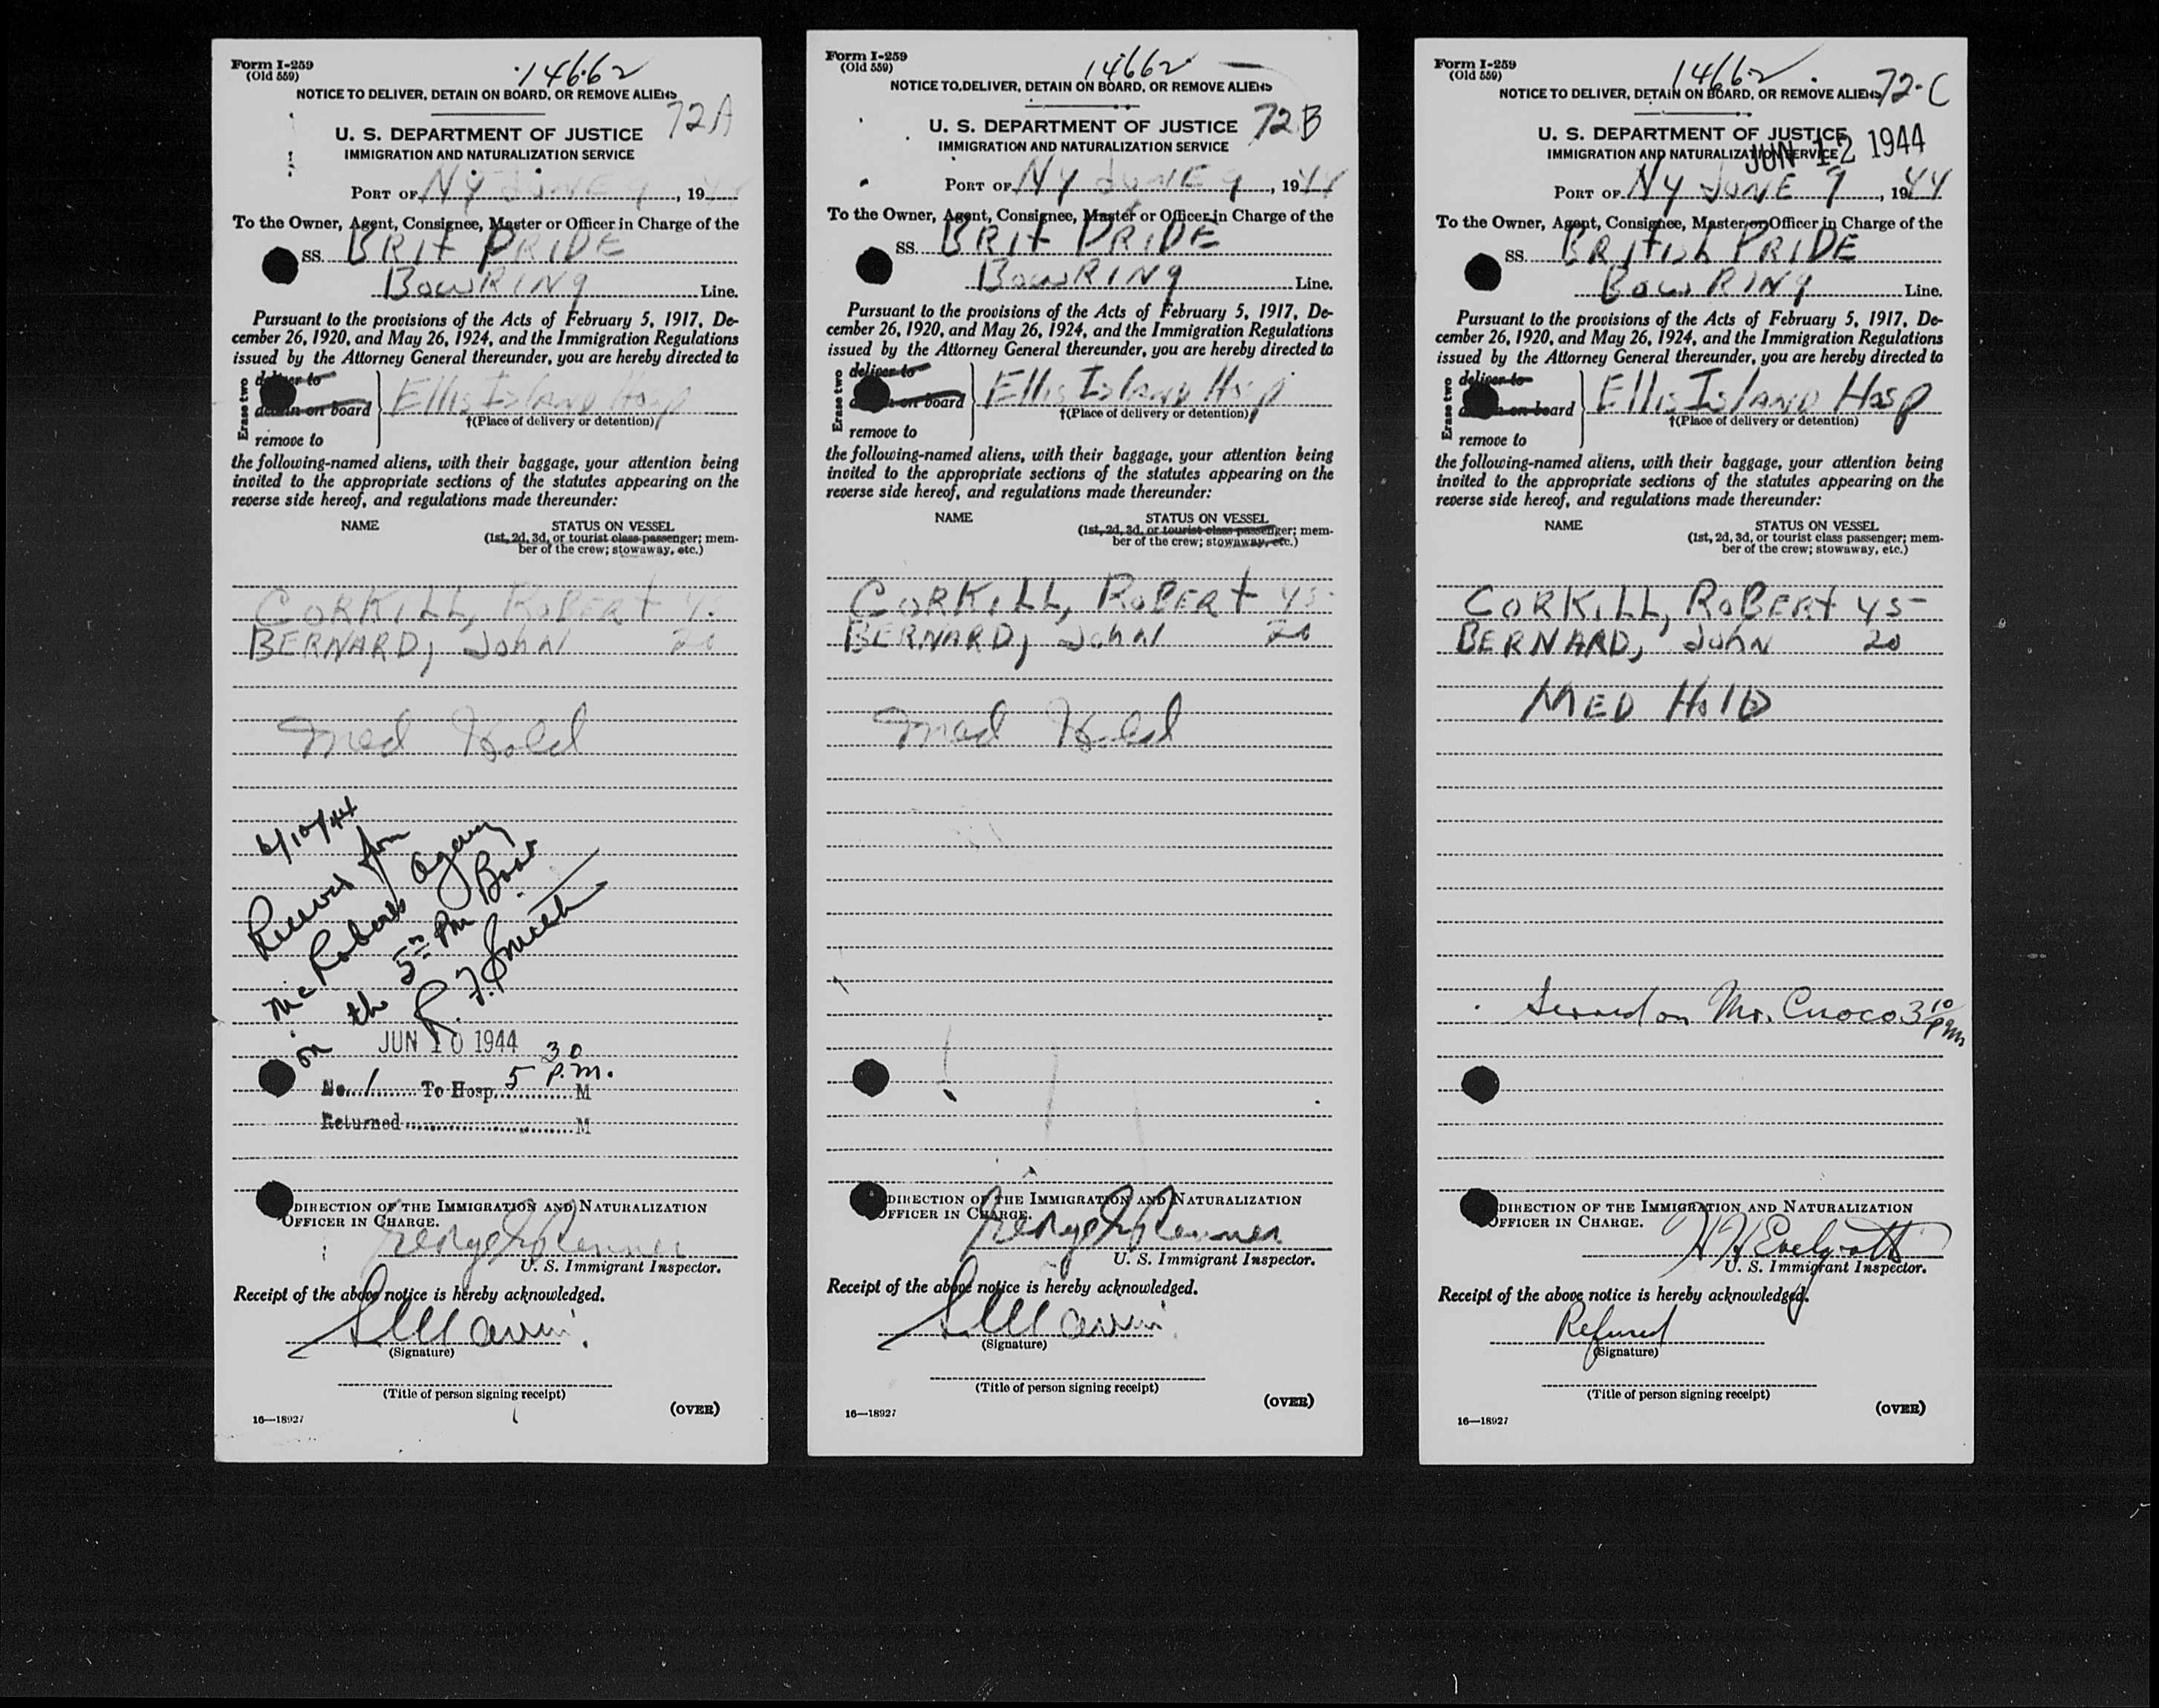 Form I-259
(Old 559)
14662
NOTICE TO DELIVER, DETAIN ON BOARD, OR REMOVE ALIENS
72A
U. S. DEPARTMENT OF JUSTICE
IMMIGRATION AND NATURALIZATION SERVICE
PORT OF NY JUNE 9, 19
To the Owner, Agent, Consignee, Master or Officer in Charge of the
SS. BRIT PRIDE
BOWRING Line.
Pursuant to the provisions of the Acts of February 5, 1917, De-
cember 26, 1920, and May 26, 1924, and the Immigration Regulations
issued by the Attorney General thereunder, you are hereby directed to
Erase two
deliver to
detain on board
remove to
Ellis Island Hosp
†(Place of delivery or detention)
the following-named aliens, with their baggage, your attention being
invited to the appropriate sections of the statutes appearing on the
reverse side hereof, and regulations made thereunder:
NAME STATUS ON VESSEL
(1st, 2d, 3d, or tourist class passenger; mem-
ber of the crew; stowaway, etc.)
CORKILL, ROBERT
BERNARD, JOHN 20
Med Hold
6/10/44
from
Agency
on the 5 PM Boat
R. F. Smith
JUN 10 1944
No. 1 To Hosp. 5 30 P.M. M
Returned M
DIRECTION OF THE IMMIGRATION AND NATURALIZATION
OFFICER IN CHARGE.
U. S. Immigrant Inspector.
Receipt of the above notice is hereby acknowledged.
(Signature)
(Title of person signing receipt)
16—18927 (OVER)
Form I-259
(Old 559)
14662
NOTICE TO DELIVER, DETAIN ON BOARD, OR REMOVE ALIENS
U. S. DEPARTMENT OF JUSTICE 72B
IMMIGRATION AND NATURALIZATION SERVICE
PORT OF NY JUNE 9, 1944
To the Owner, Agent, Consignee, Master or Officer in Charge of the
SS. BRIT PRIDE
BOWRING Line.
Pursuant to the provisions of the Acts of February 5, 1917, De-
cember 26, 1920, and May 26, 1924, and the Immigration Regulations
issued by the Attorney General thereunder, you are hereby directed to
Erase two
deliver to
on board
remove to
Ellis Island Hosp
†(Place of delivery or detention)
the following-named aliens, with their baggage, your attention being
invited to the appropriate sections of the statutes appearing on the
reverse side hereof, and regulations made thereunder:
NAME STATUS ON VESSEL
(1st, 2d, 3d, or tourist class passenger; mem-
ber of the crew; stowaway, etc.)
CORKILL, ROBERT 45
BERNARD, JOHN 20
Med Hold
DIRECTION OF THE IMMIGRATION AND NATURALIZATION
OFFICER IN CHARGE.
U. S. Immigrant Inspector.
Receipt of the above notice is hereby acknowledged.
(Signature)
(Title of person signing receipt)
16—18927 (OVER)
Form I-259
(Old 559)
14662
NOTICE TO DELIVER, DETAIN ON BOARD, OR REMOVE ALIENS 72-C
U. S. DEPARTMENT OF JUSTICE
IMMIGRATION AND NATURALIZATION SERVICE
JUN 12 1944
PORT OF NY JUNE 9, 1944
To the Owner, Agent, Consignee, Master or Officer in Charge of the
SS. BRITISH PRIDE
BOWRING Line.
Pursuant to the provisions of the Acts of February 5, 1917, De-
cember 26, 1920, and May 26, 1924, and the Immigration Regulations
issued by the Attorney General thereunder, you are hereby directed to
Erase two
deliver to
on board
remove to
Ellis Island Hosp
†(Place of delivery or detention)
the following-named aliens, with their baggage, your attention being
invited to the appropriate sections of the statutes appearing on the
reverse side hereof, and regulations made thereunder:
NAME STATUS ON VESSEL
(1st, 2d, 3d, or tourist class passenger; mem-
ber of the crew; stowaway, etc.)
CORKILL, ROBERT 45
BERNARD, JOHN 20
MED HOLD
Served on Mr. Cuoco 3 10 pm
DIRECTION OF THE IMMIGRATION AND NATURALIZATION
OFFICER IN CHARGE.
U. S. Immigrant Inspector.
Receipt of the above notice is hereby acknowledged.
Refused
(Signature)
(Title of person signing receipt)
16—18927 (OVER)